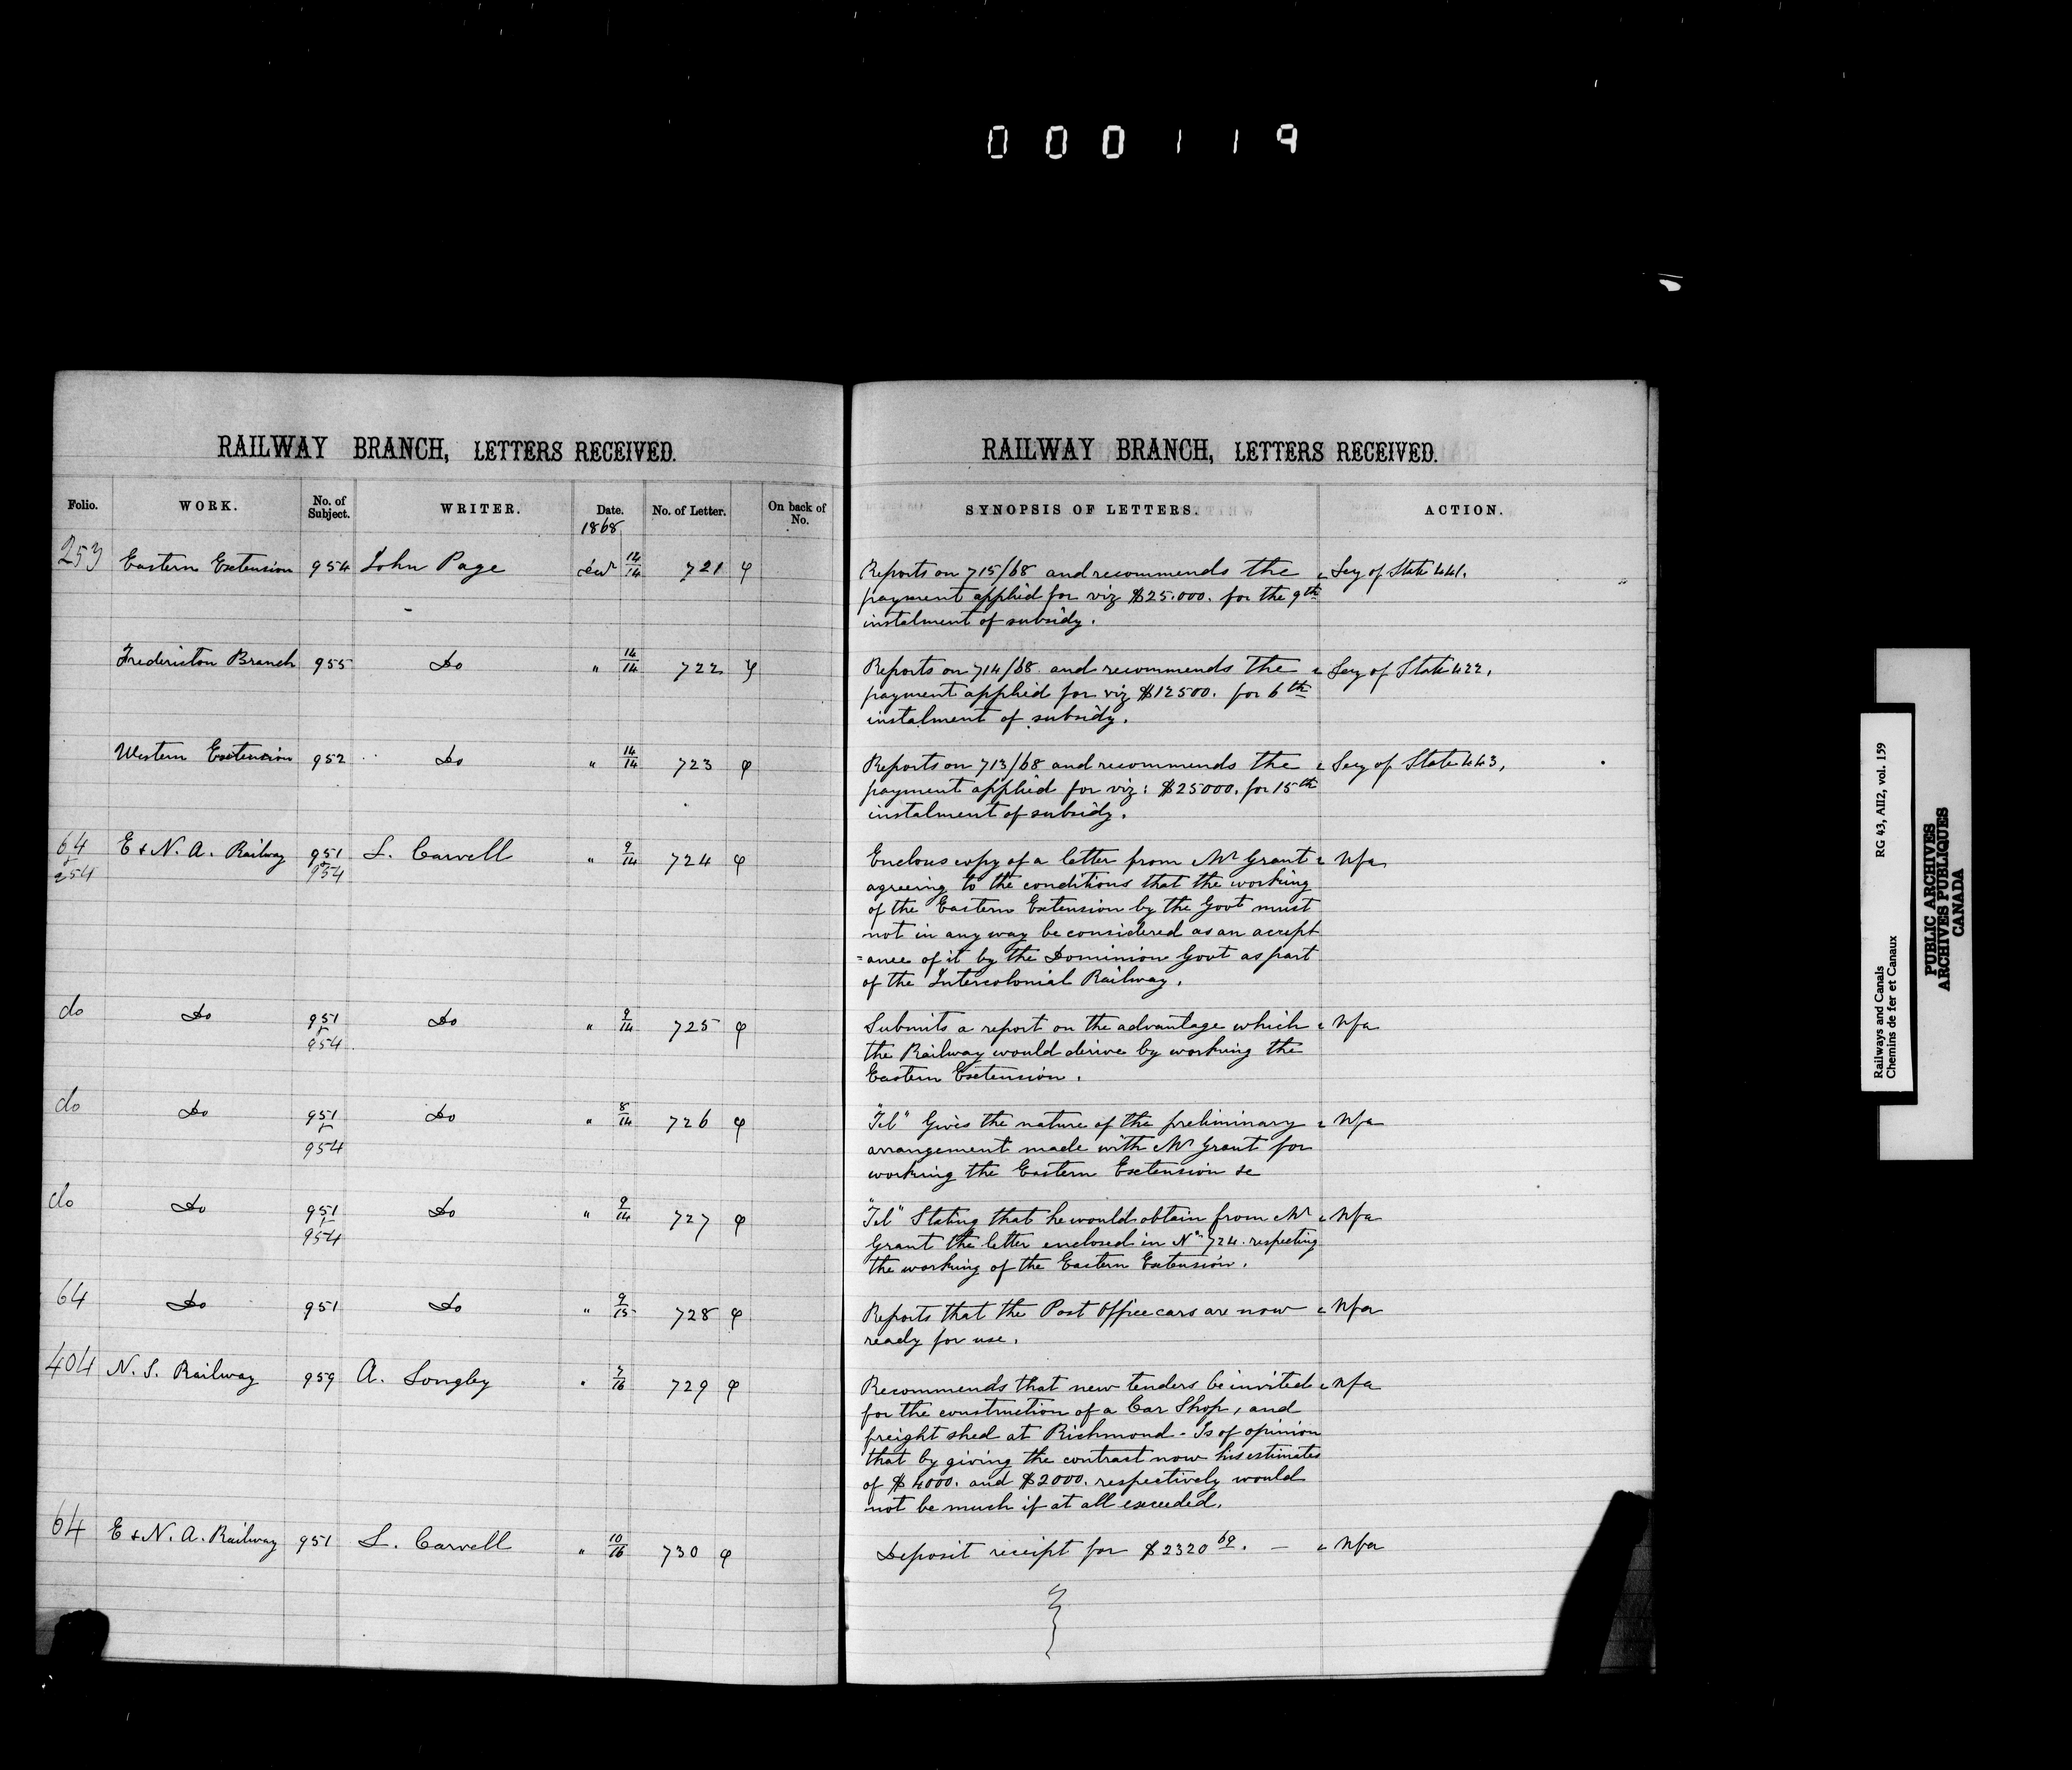 000119
RAILWAY BRANCH, LETTERS RECEIVED.
Folio. WORK. No. of Subject. WRITER. Date. No. of Letter. On back of No.
1868
253 Eastern Extension 954 John Page 14/14 721
Fredericton Branch 955 Do " 14/14 722
Western Extension 952 Do " 14/14 723
64 & 254 E & N. A. Railway 951 & 954 L. Carvell " 9/14 724
do Do 951 & 954 Do " 9/14 725
do Do 951 & 954 Do " 8/14 726
do Do 951 & 954 Do " 9/14 727
64 Do 951 Do " 9/15 728
404 N. S. Railway 959 A. Longley " 7/16 729
64 E & N. A. Railway 951 L. Carvell " 10/16 730
RAILWAY BRANCH, LETTERS RECEIVED.
SYNOPSIS OF LETTERS. ACTION.
Reports on 715/68 and recommends the Secy of State 441.
payment applied for viz $25.000. for the 9th
instalment of subsidy.
Reports on 714/68 and recommends the Secy of State 422.
payment applied for viz $12500. for 6th
instalment of subsidy.
Reports on 713/68 and recommends the Secy of State 443.
payment applied for viz: $25000. for 15th
instalment of subsidy.
Enclous copy of a letter from Mr Grant Nfa
agreeing to the conditions that the working
of the Eastern Extension by the Govt must
not in any way be considered as an accept
=ance of it by the Dominion Govt as part
of the Intercolonial Railway.
Submits a report on the advantage which Nfa
the Railway would derive by working the
Eastern Extension.
"Tel" Gives the nature of the preliminary Nfa
arrangement made with Mr Grant for
working the Eastern Extension &c
"Tel" Stating that he would obtain from Mr Nfa
Grant the letter enclosed in No. 724. respecting
the working of the Eastern Extension.
Reports that the Post Office cars are now Nfa
ready for use.
Recommends that new tenders be invited Nfa
for the construction of a Car Shop, and
freight shed at Richmond - Is of opinion
that by giving the contract now his estimates
of $4000. and $2000. respectively would
not be much if at all exceeded.
Deposit receipt for $2320 69. — Nfa
Railways and Canals RG 43, AII2, vol. 159
Chemins de fer et Canaux
PUBLIC ARCHIVES
ARCHIVES PUBLIQUES
CANADA